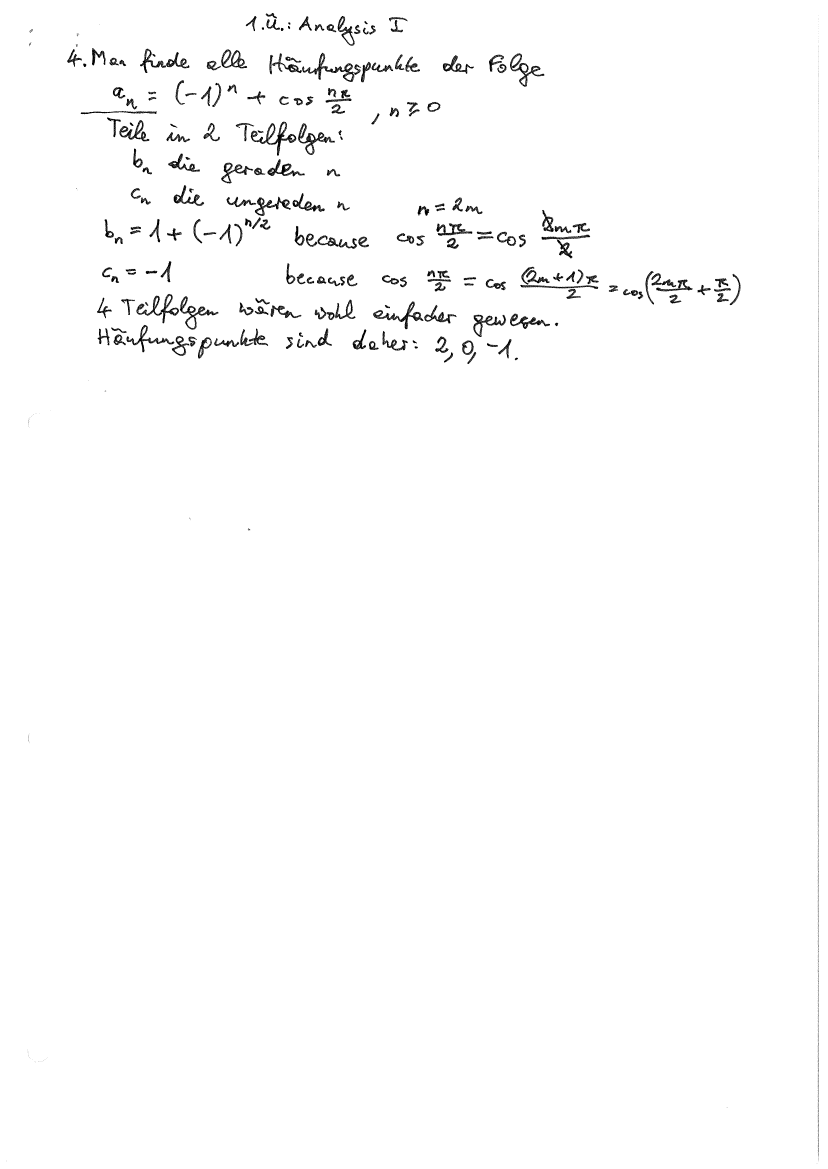 1.Ü.: Analysis I
4. Man finde alle Häufungspunkte der Folge
a_n = (-1)^n + cos nπ/2 , n ≥ 0
Teile in 2 Teilfolgen:
b_n die geraden n
c_n die ungeraden n n = 2m
b_n = 1 + (-1)^{n/2} because cos nπ/2 = cos 2mπ/2
c_n = -1 because cos nπ/2 = cos (2m+1)π/2 = cos(2mπ/2 + π/2)
4 Teilfolgen wären wohl einfacher gewesen.
Häufungspunkte sind daher: 2, 0, -1.